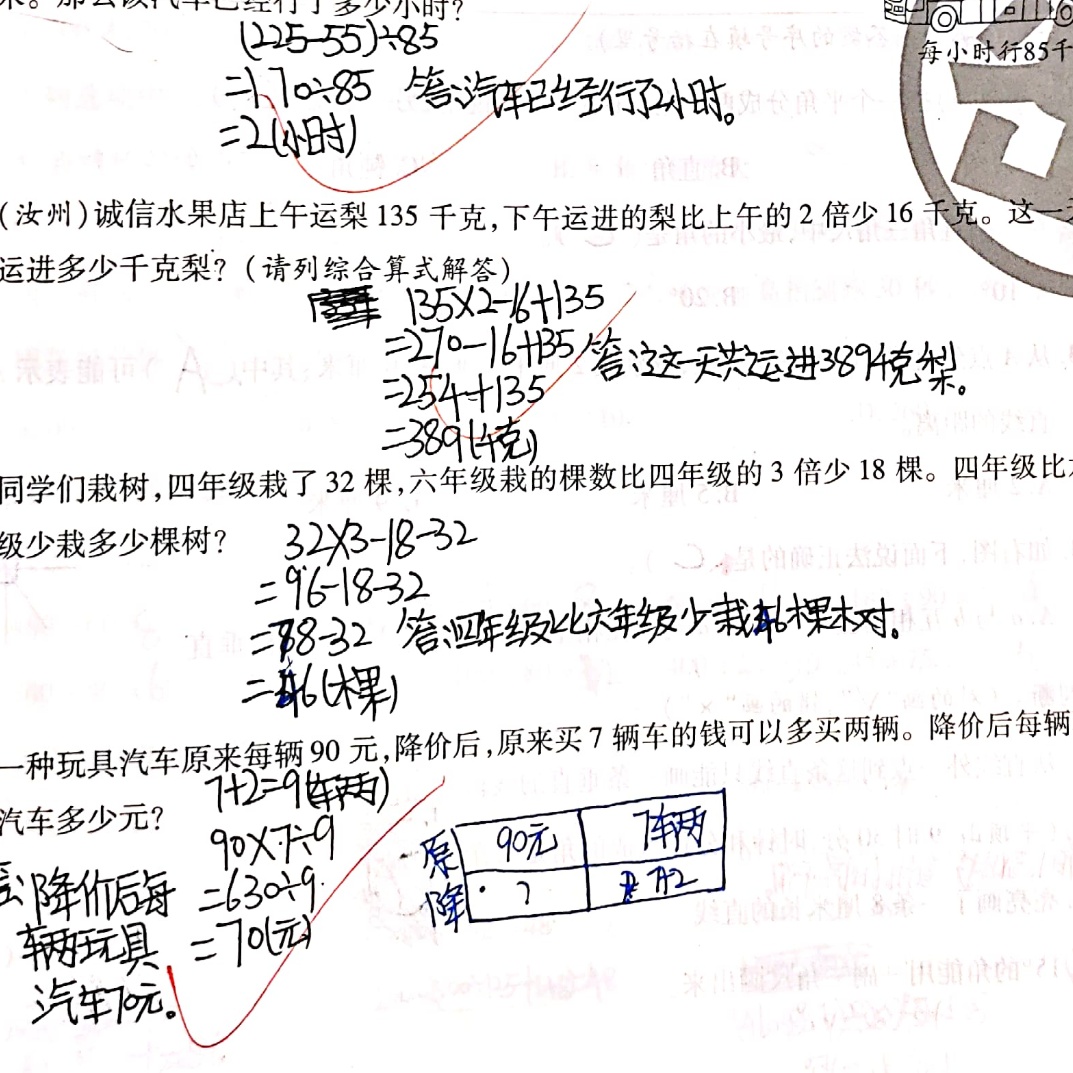 (225-55)÷85
每小时行85千
=170÷85 答:汽车已经行了2小时。
=2(小时)
(汝州)诚信水果店上午运梨135千克,下午运进的梨比上午的2倍少16千克。这一
运进多少千克梨?(请列综合算式解答)
135×2-16+135
=270-16+135
答:这一天共运进389千克梨。
=254+135
=389(千克)
同学们栽树,四年级栽了32棵,六年级栽的棵数比四年级的3倍少18棵。四年级比
级少栽多少棵树?
32×3-18-32
=96-18-32
=78-32 答:四年级比六年级少栽46棵树。
=46(棵)
一种玩具汽车原来每辆90元,降价后,原来买7辆车的钱可以多买两辆。降价后每辆
汽车多少元?
7+2=9(辆)
90×7÷9
=630÷9
=70(元)
答:降价后每
辆玩具
汽车70元。
原 90元 7辆
降 ? 7+2